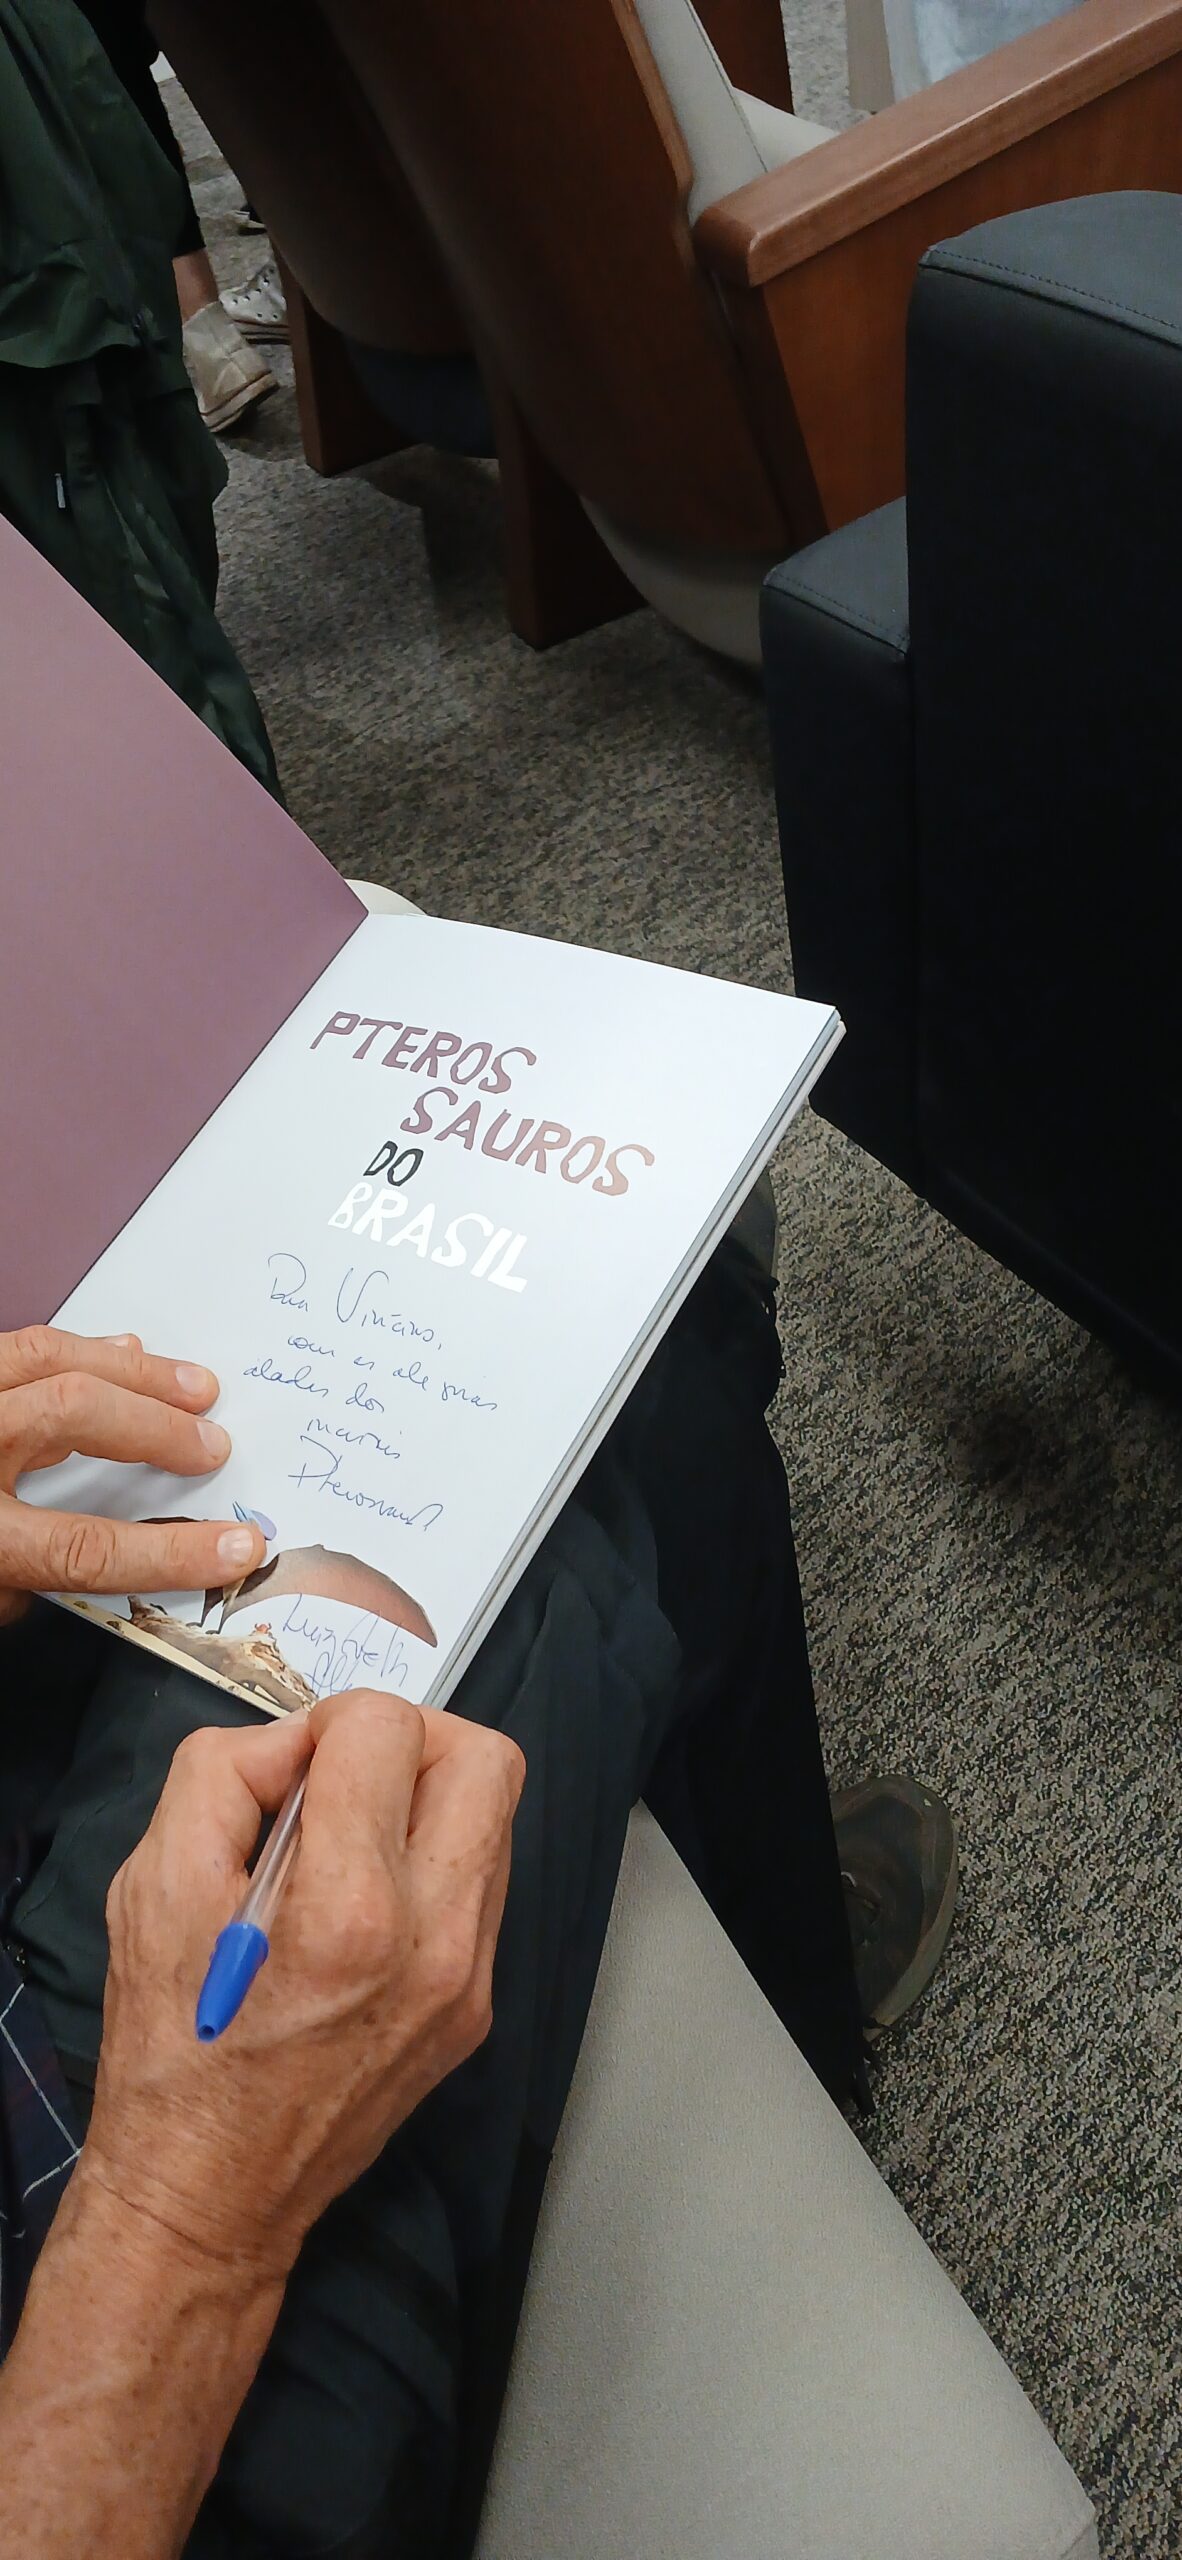 PTEROS
SAUROS
DO
BRASIL
Para Vinícius,
com as alegrias
aladas dos
Pterosauros
Luiz